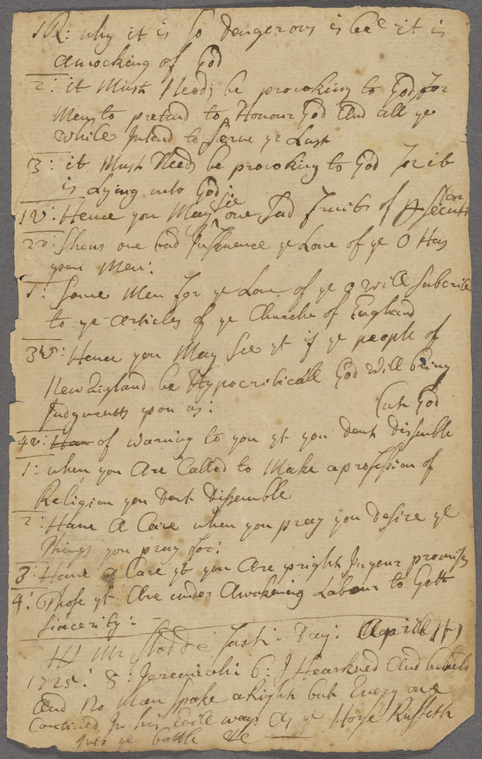 1R: why it is So Dangerous is becs it is
a mocking of God
2: it Must Needs be provoking to God, for
Men, to pretend to Honour God And all ye
while Intend to Serve yr Lust
3: it Must Needs be provoking to God for it
is Lying unto God
1v: Hence you May See one Sad fruits of persecution
2v: Shews one bad Influence ye Love of ye Has
upon Men:
1: Some Men for ye Love of ye will Subcribe
to ye Articles of ye Church of England
3v: Hence you May See yt if ye people of
Newengland be Hypocriticall God will bring
Judgments upon us: with God
4v: of warning to you yt you Dont Dissemble
1: when you Are Called to Make a profession of
Religion you Dont Dissemble
2: Have A Care when you pray you Desire ye
things you pray for:
3: Have a Care yt you Are upright In your promises
4: Those yt Are under Awakening Labour to Gett
Sincerity:
Mr Stodds fast: Day: Aprill
1725: 8: Jeremiah: 6: I Hearkned And
And No Man spoke aRight but Every one
Continued In his Evill ways As ye Horse Rusheth
Into ye battle &c